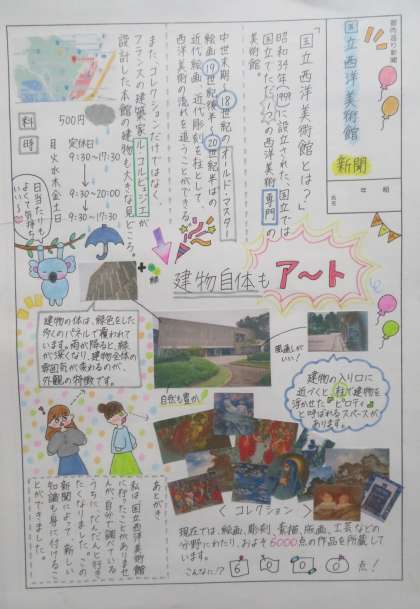 都内巡り新聞
国立西洋美術館
新聞
年　組
氏名
「国立西洋美術館とは？」
昭和34年(1959)に設立された、国立では
国立でただ1つの西洋美術専門の
美術館。
中世末期〜18世紀のオールド・マスター
絵画、19世紀後半〜20世紀半ばの
近代絵画、近代彫刻を柱として、
西洋美術の流れを追うことができる。
また、コレクションだけではなく、
フランスの建築家ル・コルビュジエが
設計した本館の建物も大きな見どころ。
料
500円
時
定休日
月
火 9:30〜17:30
水
木
金 9:30〜20:00
土
日 9:30〜17:30
日当たりも
よくて、気持ち
いい♪
緑
建物自体も
ア〜ト
建物の体は、緑色をした
多くのパネルで覆われて
います。雨が降ると、緑
が深くなり、建物全体の
雰囲気が変わるのが、
外観の特徴です。
自然も豊か
風通しがいい！
建物の入り口に
近づくと、柱で建物を
浮かせた『ピロティ』
と呼ばれるスペースが
あります。
＜コレクション＞
現在では、絵画、彫刻、素描、版画、工芸などの
分野にわたり、およそ6000点の作品を所蔵して
います。
こんなに！？
6000点！
あとがき
私は国立西洋美術館
に行ったことがありませ
んが、自分で調べている
うちに、だんだんと行き
たくなりました。この
新聞によって、新しい
知識も身に付けるこ
とができました。